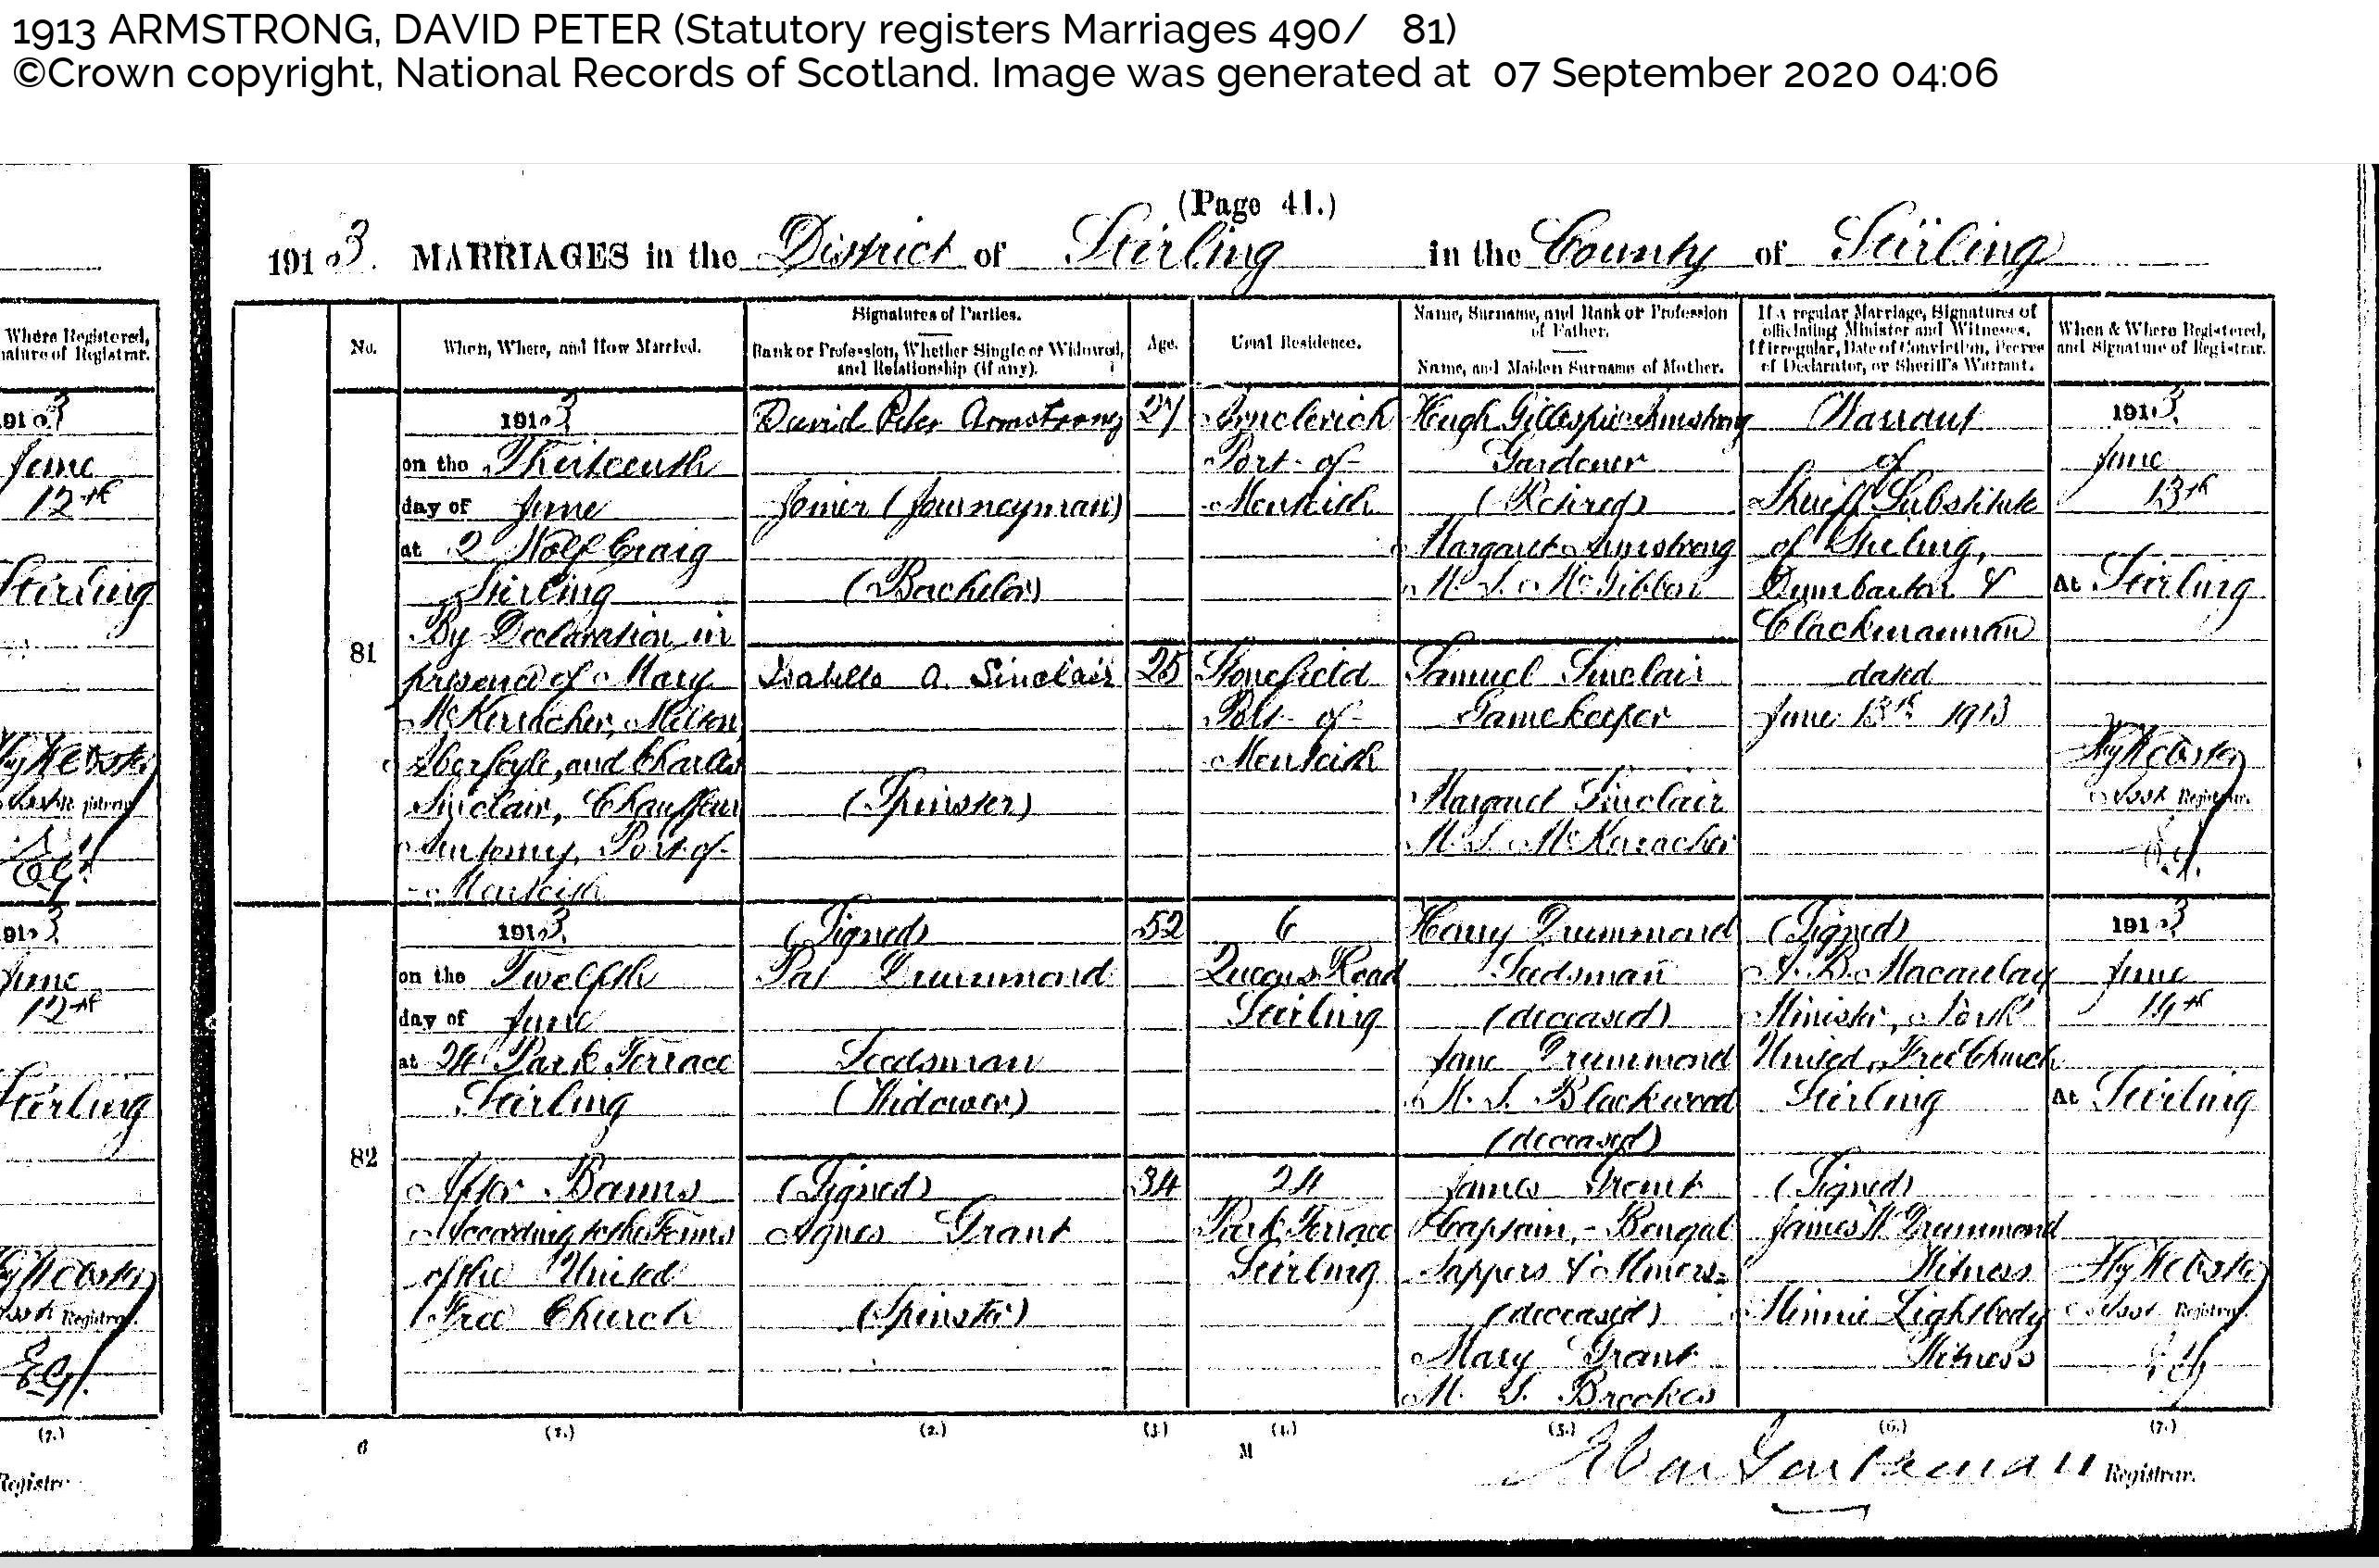 1913 ARMSTRONG, DAVID PETER (Statutory registers Marriages 490/ 81)
©Crown copyright, National Records of Scotland. Image was generated at 07 September 2020 04:06
(Page 41.)
1913. MARRIAGES in the District of Stirling in the County of Stirling
Where Registered,
nature of Registrar.
1913
June
12th
Stirling
Hy Webster
Asst Registrar
1913
June
12th
Stirling
Hy Webster
Asst Registrar.
E.G.
(7.)
Registrar
No.
When, Where, and How Married.
Signatures of Parties.
Rank or Profession, Whether Single or Widowed,
and Relationship (if any).
Age.
Usual Residence.
Name, Surname, and Rank or Profession
of Father.
Name, and Maiden Surname of Mother.
If a regular Marriage, Signatures of
officiating Minister and Witnesses.
If irregular, Date of Conviction, Decree
of Declarator, or Sheriff's Warrant.
When & Where Registered,
and Signature of Registrar.
81
1913.
on the Thirteenth
day of June
at 2 Wolf Craig
Stirling
By Declaration in
presence of Mary
McKerracher, Milton,
Aberfoyle, and Charles
Sinclair, Chauffeur
Port-of-
-Menteith
David Peter Armstrong
Joiner (Journeyman)
(Bachelor)
Isabella A. Sinclair
(Spinster)
27
25
Port-of-
Menteith
Stonefield
Port-of-
Menteith
Hugh Gillespie Armstrong
Gardener
(Retired)
Margaret Armstrong
M.S. McGibbon
Samuel Sinclair
Gamekeeper
Margaret Sinclair
M.S. McKeracher
Warrant
of
Sheriff Substitute
of Stirling,
Dumbarton &
Clackmannan
dated
June 13th 1913
1913.
June
13th
At Stirling
Hy Webster
Asst Registrar.
82
1913.
on the Twelfth
day of June
at 24 Park Terrace
Stirling
After Banns
According to the Forms
of the United
Free Church
(Signed)
Pat Drummond
Seedsman
(Widower)
(Signed)
Agnes Grant
(Spinster)
52
34
6
Queens Road
Stirling
24
Park Terrace
Stirling
Henry Drummond
Seedsman
(deceased)
Jane Drummond
M.S. Blackwood
(deceased)
James Grant
Captain, - Bengal
Sappers & Miners.
(deceased)
Mary Grant
M.S. Brookes
(Signed)
A. B. Macaulay
Minister, North
United Free Church
Stirling
(Signed)
James W. Drummond
Witness
Minnie Lightbody
Witness
1913
June
14th
At Stirling
Hy Webster
Asst Registrar.
(1.) (2.) (3.) (4.) (5.) (6.) (7.)
C M
Registrar.